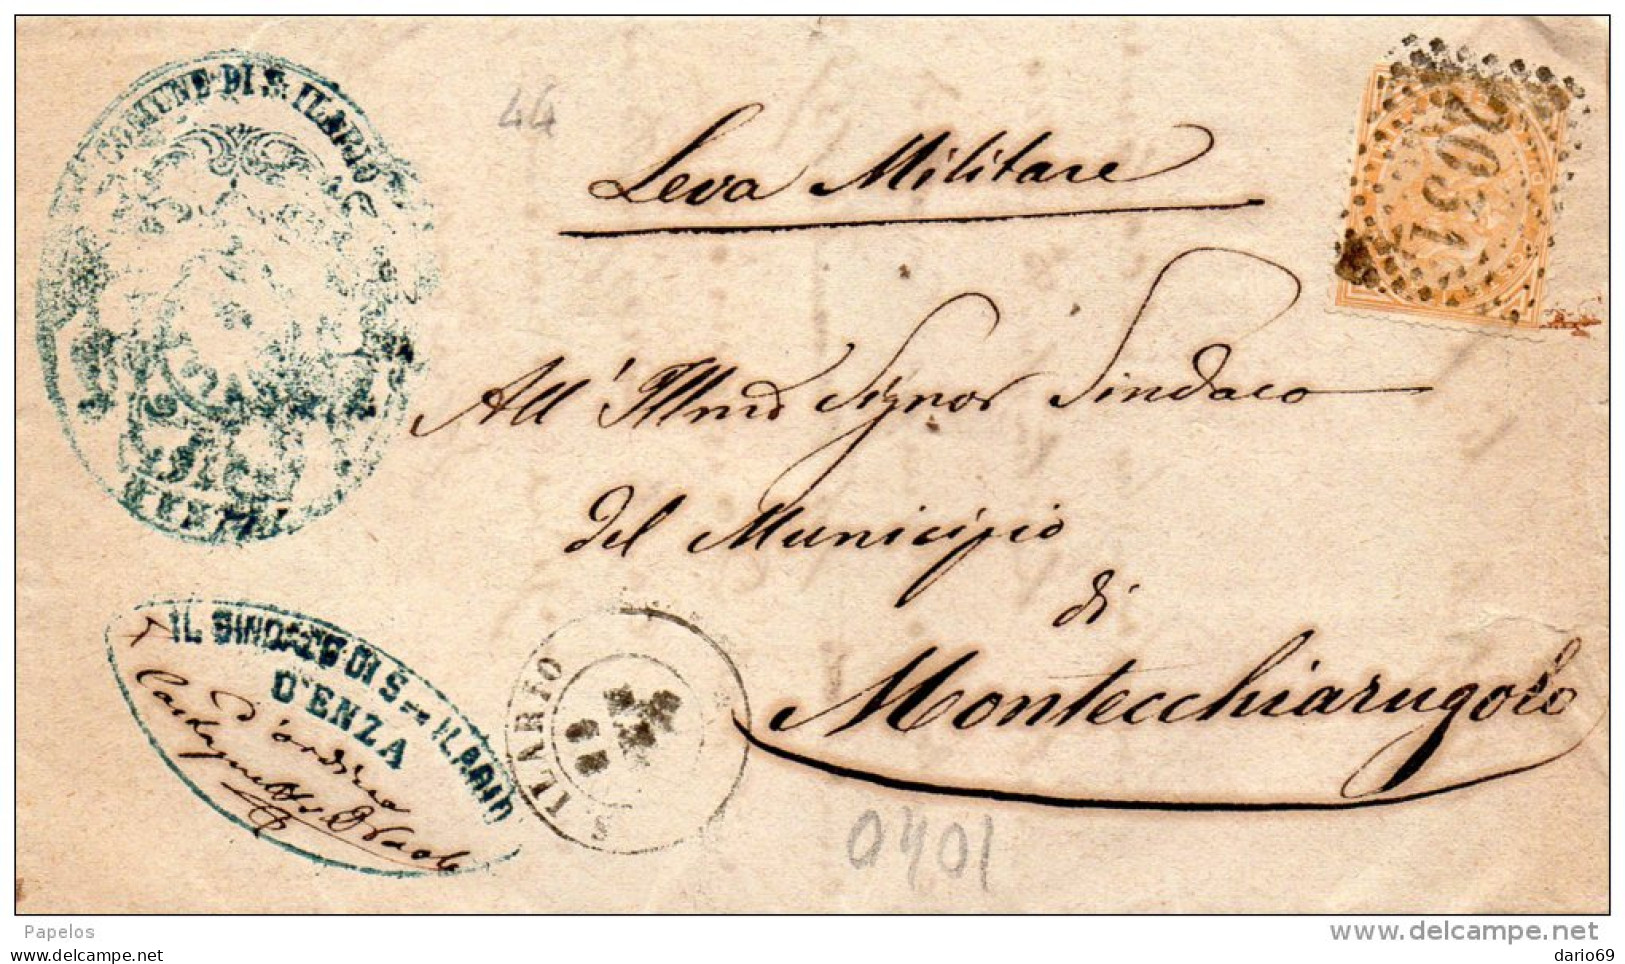 COMUNE DI S. ILARIO
44
Leva Militare
2031
All' Illmo Signor Sindaco
del Municipio
di
Montecchiarugolo
IL SINDACO DI S. ILARIO
D'ENZA
d'ordine
S. ILARIO
0401
Papelos
www.delcampe.net
dario69